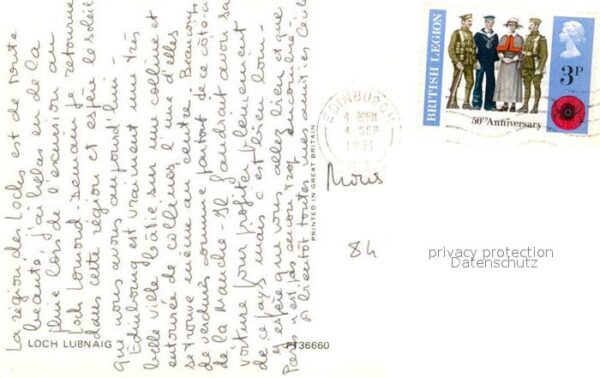 La région des Lochs est de toute
beauté, j'ai hélas eu de la
pluie lors de l'excursion au
Loch Lomond - Demain je retourne
dans cette région et espère le soleil
que nous avons aujourd'hui -
Edinbourg est vraiment une très
belle ville bâtie sur une colline et
entourée de collines, l'une d'elles
se trouve même au centre. Beaucoup
de verdure comme partout de ce côté-ci
de la Manche - Il faudrait avoir sa
voiture pour profiter pleinement
de ce pays mais c'est bien loin -
J'espère que vous allez bien et que
Paris n'est pas encore trop encombré -
A bientôt toutes mes amitiés
LOCH LUBNAIG
PT36660
PRINTED IN GREAT BRITAIN
EDINBURGH
4 PM
4 SEP
1971
BRITISH LEGION
50th Anniversary
3P
84
privacy protection
Datenschutz